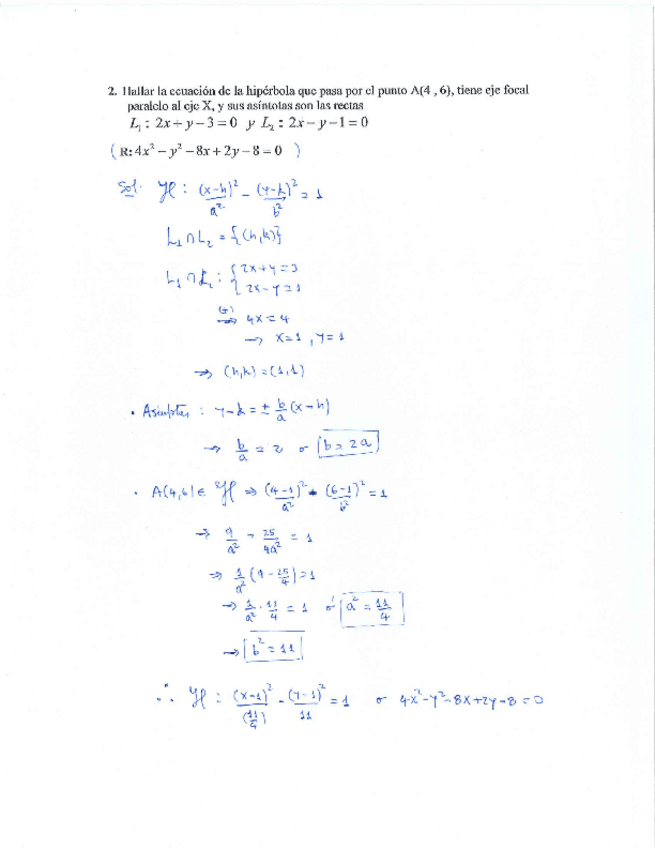 2. Hallar la ecuación de la hipérbola que pasa por el punto A(4 , 6), tiene eje focal
paralelo al eje X, y sus asíntotas son las rectas
L₁ : 2x + y − 3 = 0 y L₂ : 2x − y − 1 = 0
( R: 4x² − y² − 8x + 2y − 8 = 0 )
Sol. ℋ : (x-h)²/a² - (y-k)²/b² = 1
L₁ ∩ L₂ = {(h,k)}
L₁ ∩ L₂ : { 2x+y=3
2x-y=1
(+) ⇒ 4x = 4
→ x=1 , y=1
⇒ (h,k) = (1,1)
• Asíntotas : y-k = ± b/a (x-h)
→ b/a = 2 o b = 2a
• A(4,6) ∈ ℋ ⇒ (4-1)²/a² - (6-1)²/b² = 1
→ 9/a² - 25/4a² = 1
⇒ 1/a² (9 - 25/4) = 1
→ 1/a² · 11/4 = 1 ó a² = 11/4
→ b² = 11
∴ ℋ : (x-1)²/(11/4) - (y-1)²/11 = 1 o 4x²-y²-8x+2y-8=0